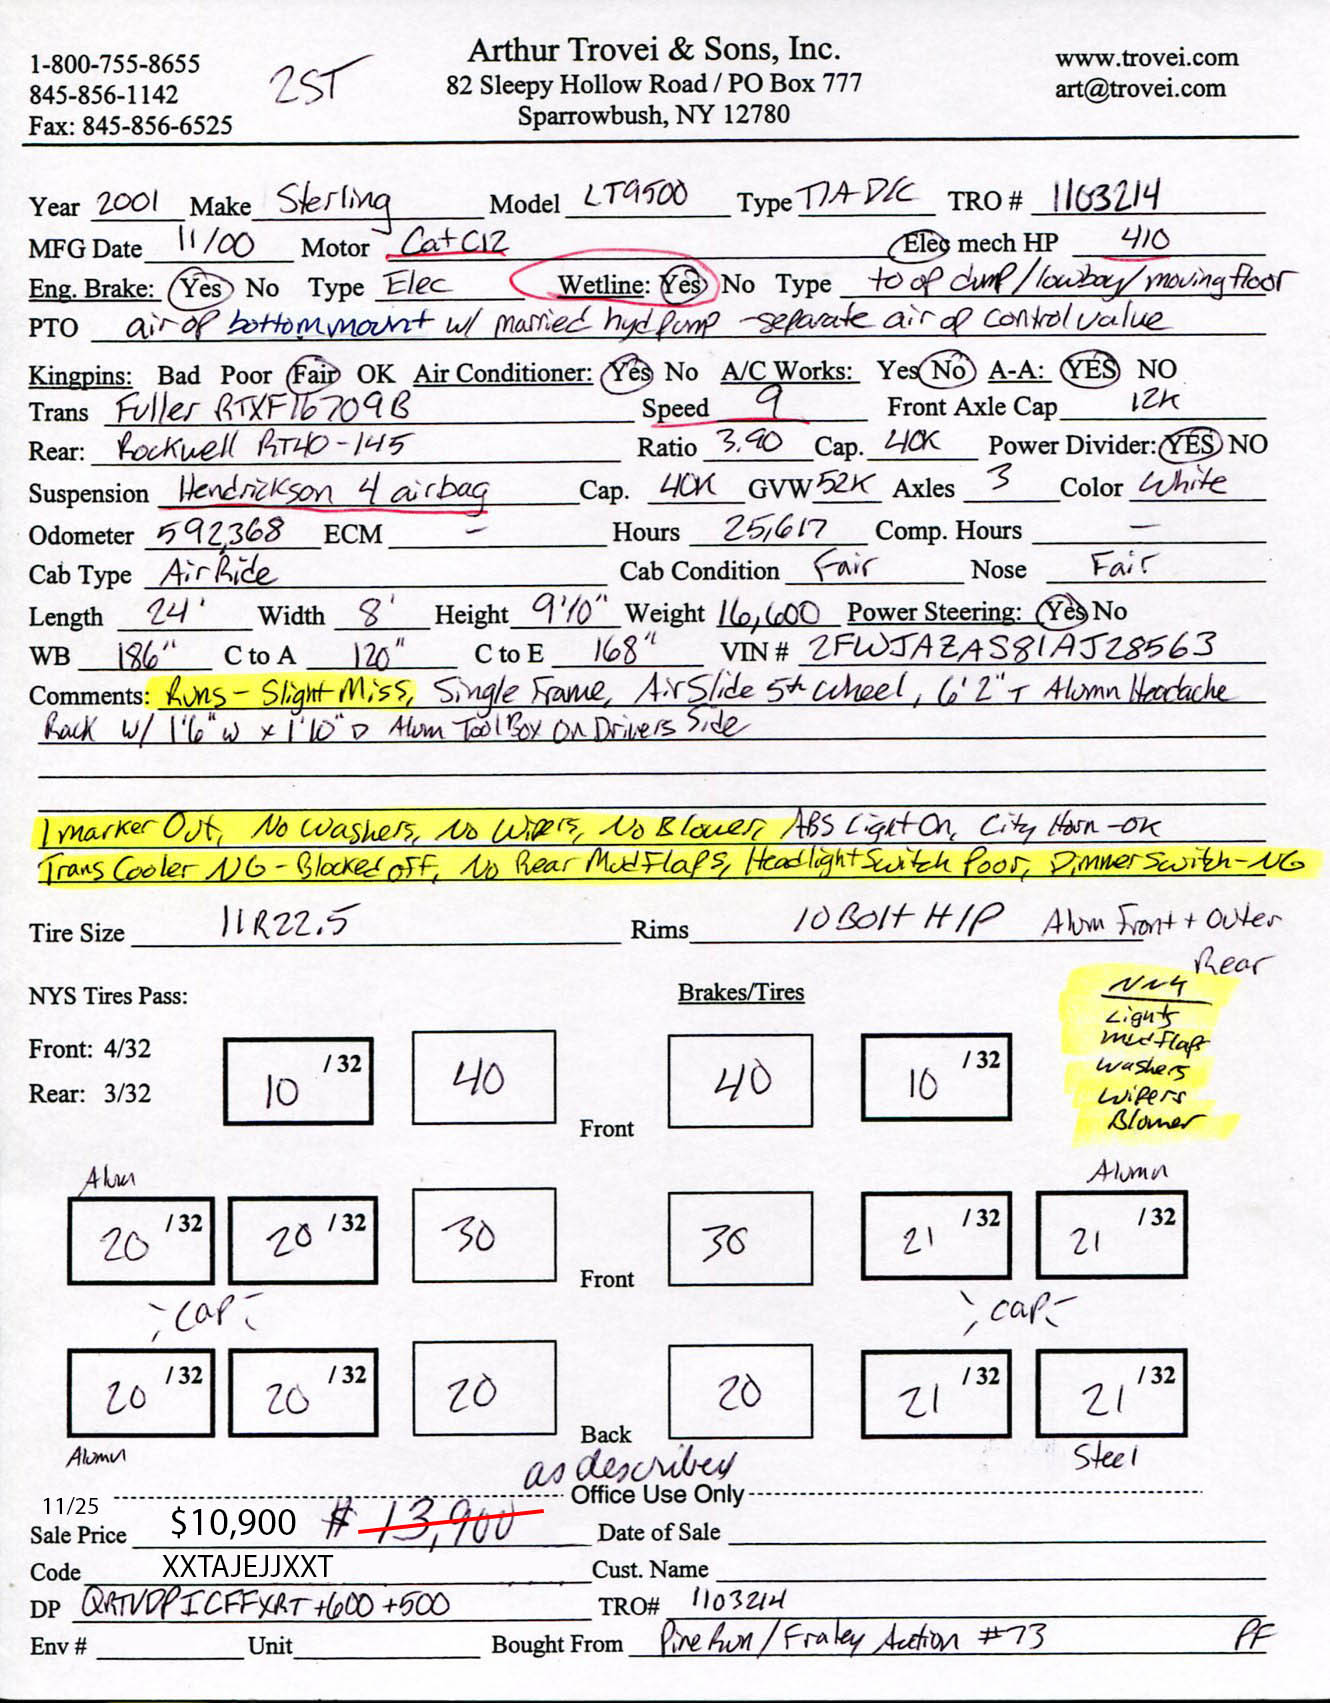 Arthur Trovei & Sons, Inc.
82 Sleepy Hollow Road / PO Box 777
Sparrowbush, NY 12780
1-800-755-8655
845-856-1142
Fax: 845-856-6525
2ST
www.trovei.com
art@trovei.com
Year 2001 Make Sterling Model LT9500 Type T/A D/C TRO # 1103214
MFG Date 11/00 Motor Cat C12 Elec mech HP 410
Eng. Brake: Yes No Type Elec Wetline: Yes No Type to op dump/lowboy/moving floor
PTO air op bottom mount w/ married hyd pump - separate air op control valve
Kingpins: Bad Poor Fair OK Air Conditioner: Yes No A/C Works: Yes No A-A: YES NO
Trans Fuller RTXF16709B Speed 9 Front Axle Cap 12K
Rear: Rockwell RT40-145 Ratio 3.90 Cap. 40K Power Divider: YES NO
Suspension Hendrickson 4 airbag Cap. 40K GVW 52K Axles 3 Color White
Odometer 592,368 ECM - Hours 25,617 Comp. Hours -
Cab Type Air Ride Cab Condition Fair Nose Fair
Length 24' Width 8' Height 9'10" Weight 16,600 Power Steering: Yes No
WB 186" C to A 120" C to E 168" VIN # 2FWJAZAS81AJ28563
Comments: Runs - Slight Miss, Single Frame, Air Slide 5th Wheel, 6'2" T Alumn Headache
Rack w/ 1'6" w x 1'10" D Alum Tool Box On Drivers Side
1 Marker Out, No Washers, No Wipers, No Blower, ABS Light On, City Horn - OK
Trans Cooler NG - Blocked off, No Rear Mud Flaps, Headlight Switch Poor, Dimmer Switch - NG
Tire Size 11R22.5 Rims 10 Bolt H/P Alum Front + Outer
Rear
NYS Tires Pass: Brakes/Tires
Lights
Mud Flaps
Washers
Wipers
Blower
Front: 4/32
Rear: 3/32
10 /32 40 Front 40 10 /32
Alum Alumn
20 /32 20 /32 30 Front 30 21 /32 21 /32
CAP CAP
20 /32 20 /32 20 Back 20 21 /32 21 /32
Alumn Steel
as described
Office Use Only
11/25
Sale Price $10,900 # 13,900 Date of Sale
Code XXTAJEJJXXT Cust. Name
DP QRTVDPICFFXRT +600 +500 TRO# 1103214
Env # Unit Bought From Pine Run / Fraley Auction #73 PF